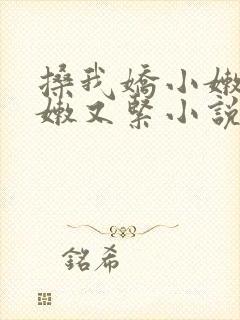 搡我嬌小嫩
嫩又緊小說
銘希